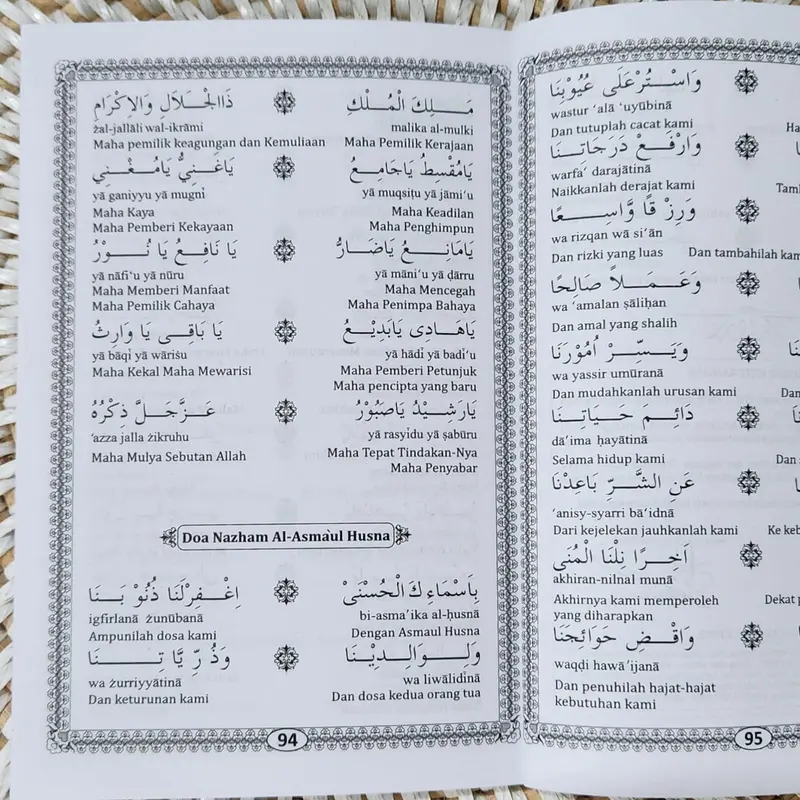 مَلِكَ الْمُلْكِ
malika al-mulki
Maha Pemilik Kerajaan
ذَاالْجَلَالِ وَالْاِكْرَامِ
żal-jallāli wal-ikrāmi
Maha pemilik keagungan dan Kemuliaan
يَامُقْسِطُ يَاجَامِعُ
yā muqsiṭu yā jāmi‘u
Maha Keadilan
Maha Penghimpun
يَاغَنِيُّ يَامُغْنِي
yā ganiyyu yā mugnī
Maha Kaya
Maha Pemberi Kekayaan
يَامَانِعُ يَاضَارُّ
yā māni‘u yā ḍārru
Maha Mencegah
Maha Penimpa Bahaya
يَا نَافِعُ يَا نُوْرُ
yā nāfi‘u yā nūru
Maha Memberi Manfaat
Maha Pemilik Cahaya
يَاهَادِى يَابَدِيْعُ
yā hādī yā badī‘u
Maha Pemberi Petunjuk
Maha pencipta yang baru
يَا بَاقِى يَا وَارِثُ
yā bāqī yā wāriṡu
Maha Kekal Maha Mewarisi
يَارَشِيْدُ يَاصَبُوْرُ
yā rasyīdu yā ṣabūru
Maha Tepat Tindakan-Nya
Maha Penyabar
عَزَّجَلَّ ذِكْرُهُ
‘azza jalla żikruhu
Maha Mulya Sebutan Allah
Doa Nazham Al-Asmàul Husna
بِاَسْمَاءِكَ الْحُسْنَىْ
bi-asma’ika al-ḥusnā
Dengan Asmaul Husna
اِغْفِرْلَنَا ذُنُوْ بَنَا
igfirlanā żunūbanā
Ampunilah dosa kami
وَلِوَالِدِيْنَا
wa liwālidīnā
Dan dosa kedua orang tua
وَذُرِّ يَّا تِنَا
wa żurriyyātinā
Dan keturunan kami
94
وَاسْتُرْعَلَى عُيُوْبِنَا
wastur ‘alā ‘uyūbinā
Dan tutuplah cacat kami
وَارْفَعْ دَرَجَاتِنَا
warfa‘ darajātinā
Naikkanlah derajat kami
وَرِزْ قًا وَّاسِعًا
wa rizqan wā si‘ān
Dan rizki yang luas
Dan tambahilah
وَعَمَلاً صَالِحًا
wa ‘amalan ṣāliḥan
Dan amal yang shalih
وَيَسِّرْ اُمُوْرَنَا
wa yassir umūranā
Dan mudahkanlah urusan kami
دَائِمَ حَيَاتِنَا
dā’ima ḥayātinā
Selama hidup kami
عَنِ الشَّرِّ بَاعِدْنَا
‘anisy-syarri bā‘idnā
Dari kejelekan jauhkanlah kami
اَخِرًا نِلْنَا الْمُنَى
akhiran-nilnal munā
Akhirnya kami memperoleh
yang diharapkan
Dekat
وَاقْضِ حَوَائِجَنَا
waqḍi hawā’ijanā
Dan penuhilah hajat-hajat
kebutuhan kami
95